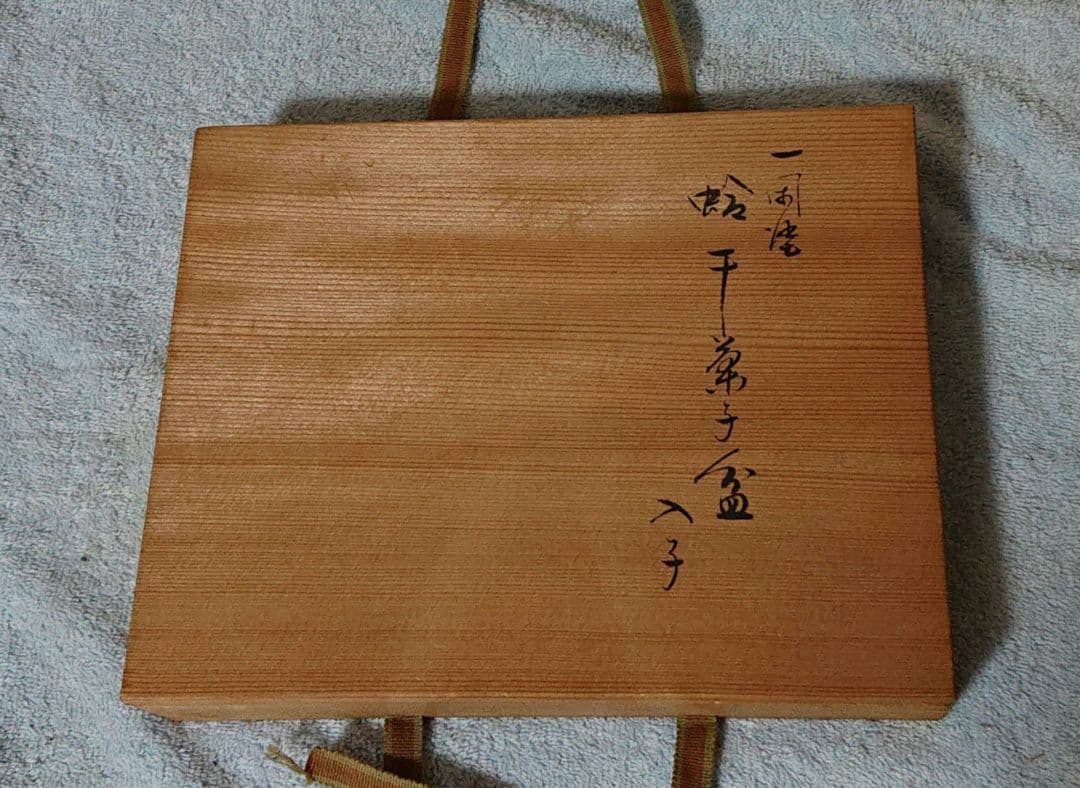 一閑塗
蛤干菓子盆
入子